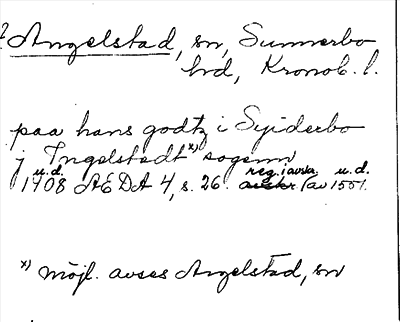 ? Angelstad, sn, Sunnerbo
hd, Kronob. l.
paa hans godtz i Syiderbo
j Ingelstadt x) sogenn
u.d. reg. i avskr. u.d.
1408 AEDA 4, s. 26. avskr. (av 1551.
x) möjl. avses Angelstad, sn